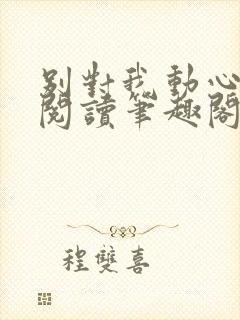 別對我動心
閱讀筆趣閣
程雙喜